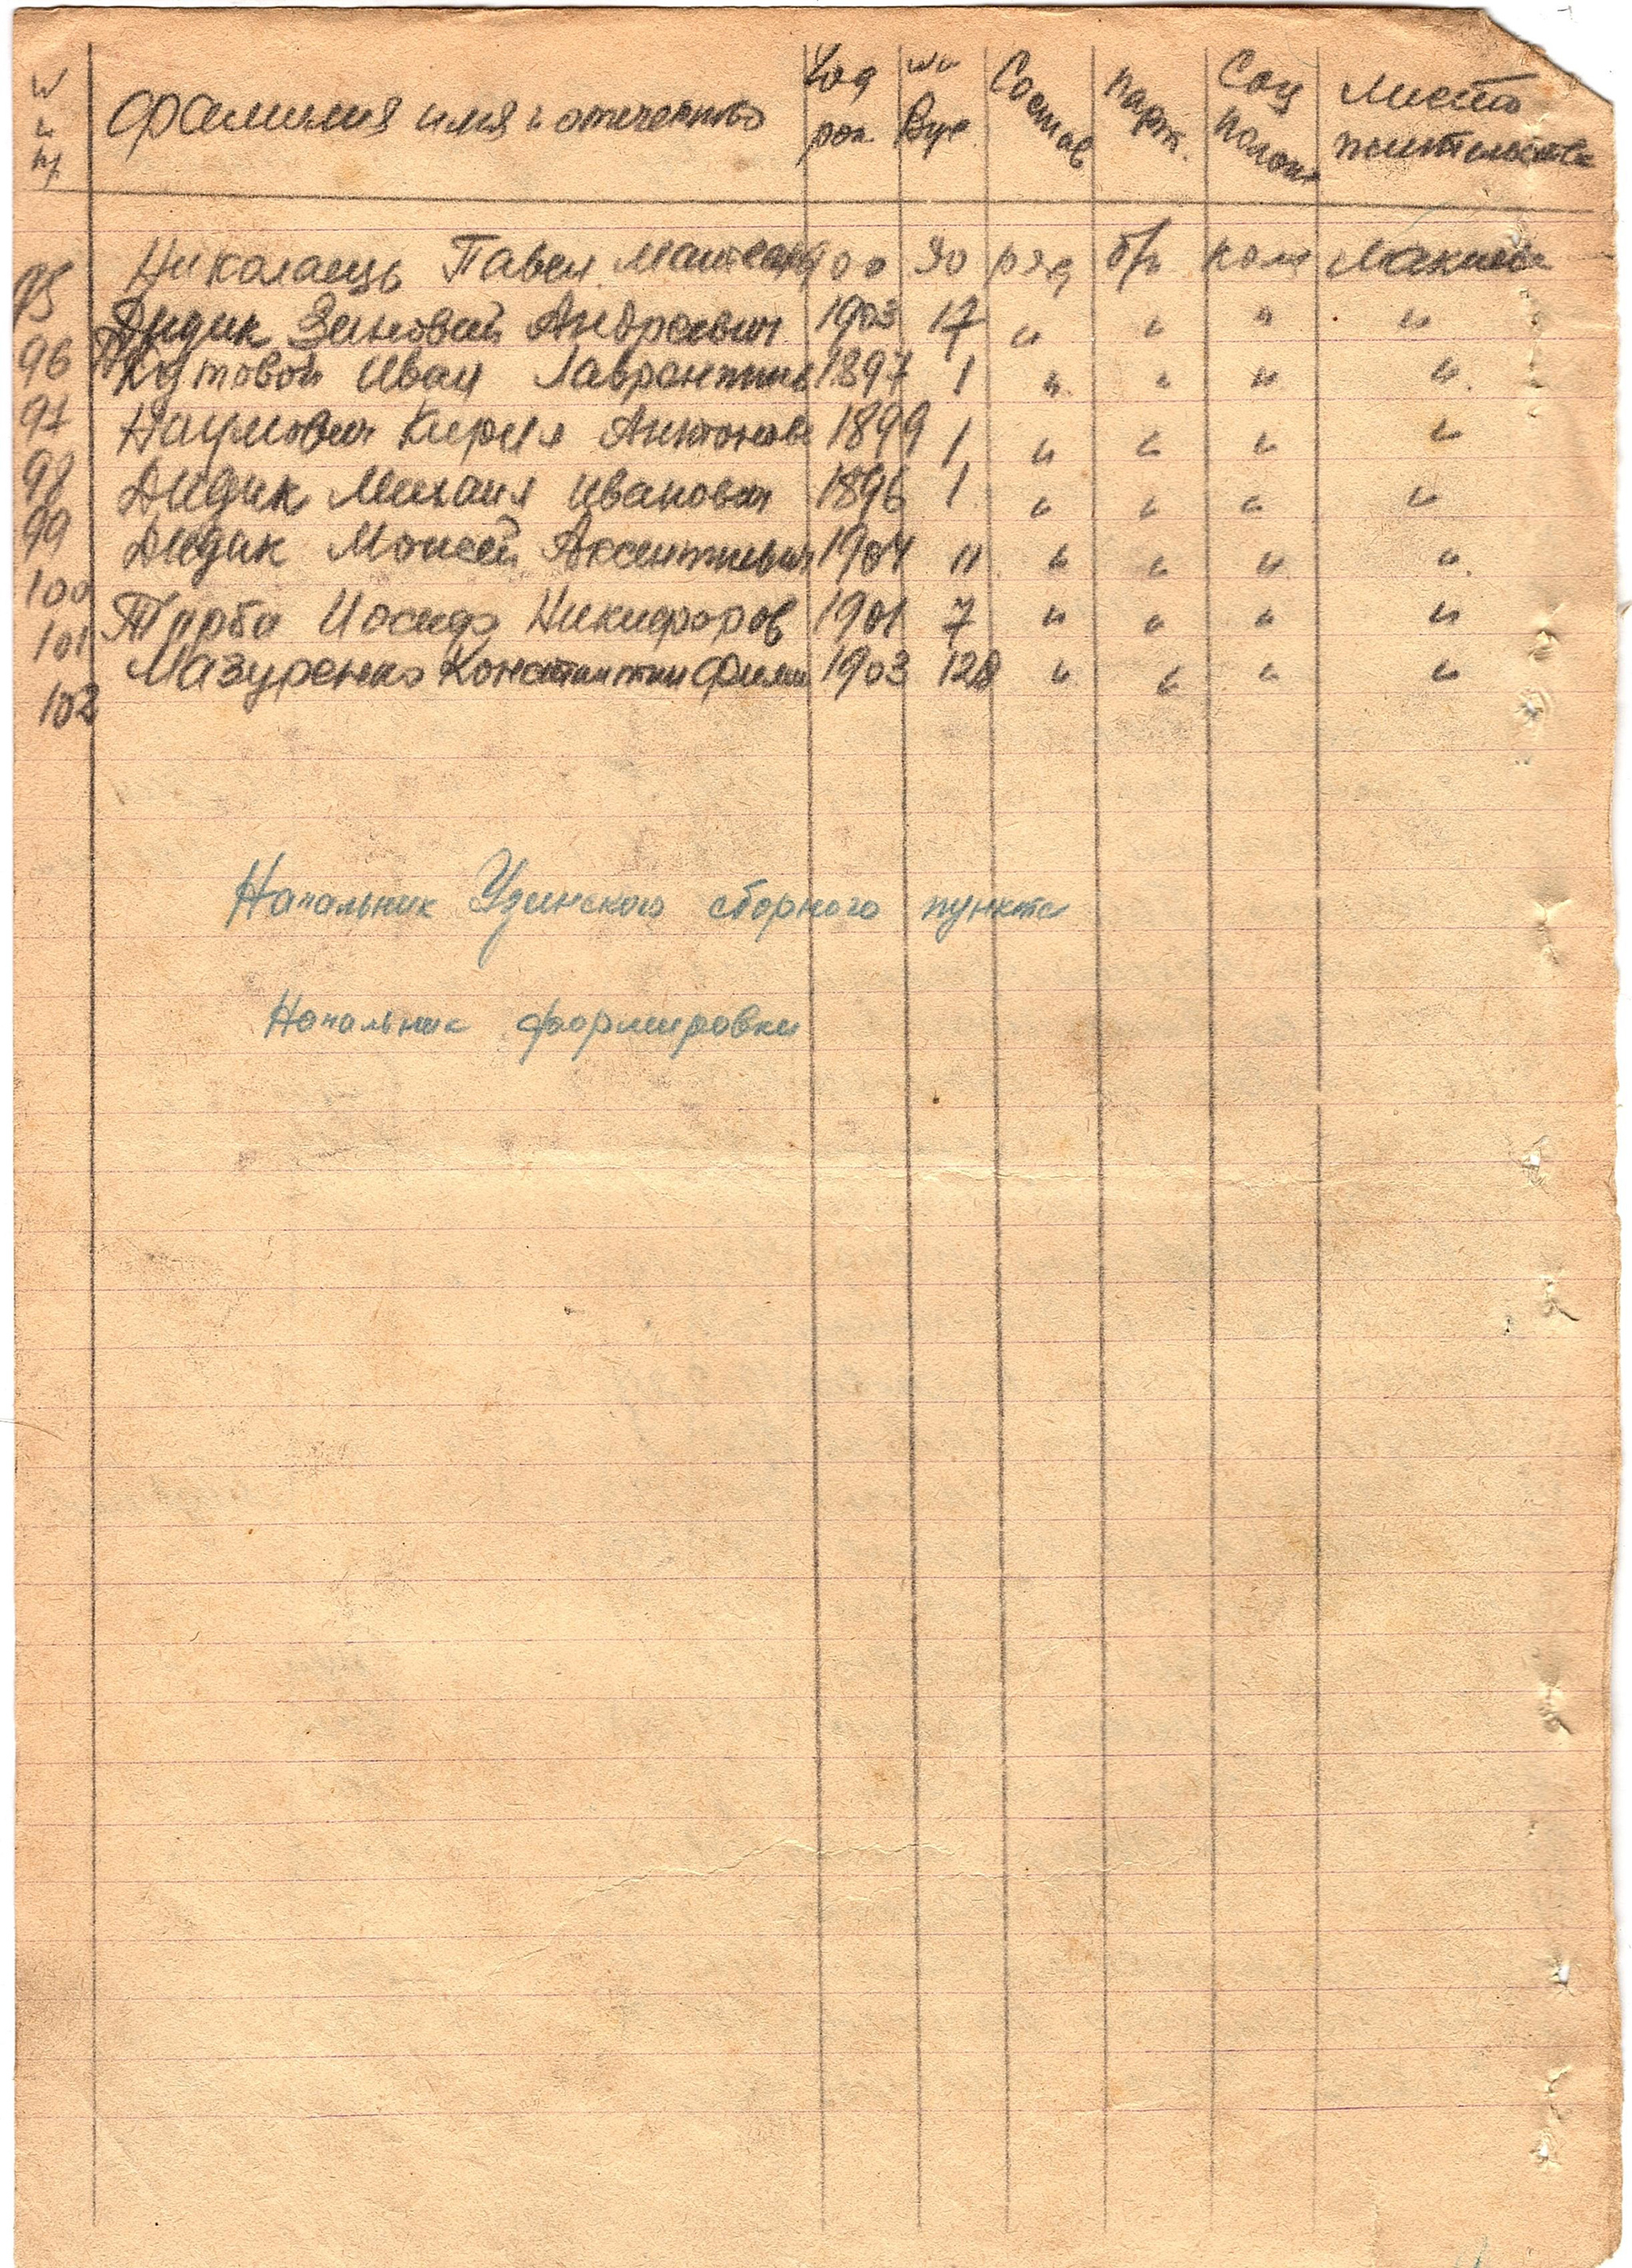 № п/п Фамилия имя и отчество Год рож. № Вус Состав парт. Соц полож Место жительства
95 Николаець Павел 900 30 ряд б/п кол
96 Дидик Зиновий Андреевич 1903 17 " " " "
97 Кутовой Иван Лаврентиев 1897 1 " " " "
98 Наумович Кирил Антонов 1899 1 " " " "
99 Дидик Михаил Иванович 1896 1 " " " "
100 Дидик Моисей Аксентиевич 1904 11 " " " "
101 Турба Иосиф Никифоров 1901 7 " " " "
102 Мазуренко Константин Фили 1903 128 " " " "
Начальник Узинского сборного пункта
Начальник формировки